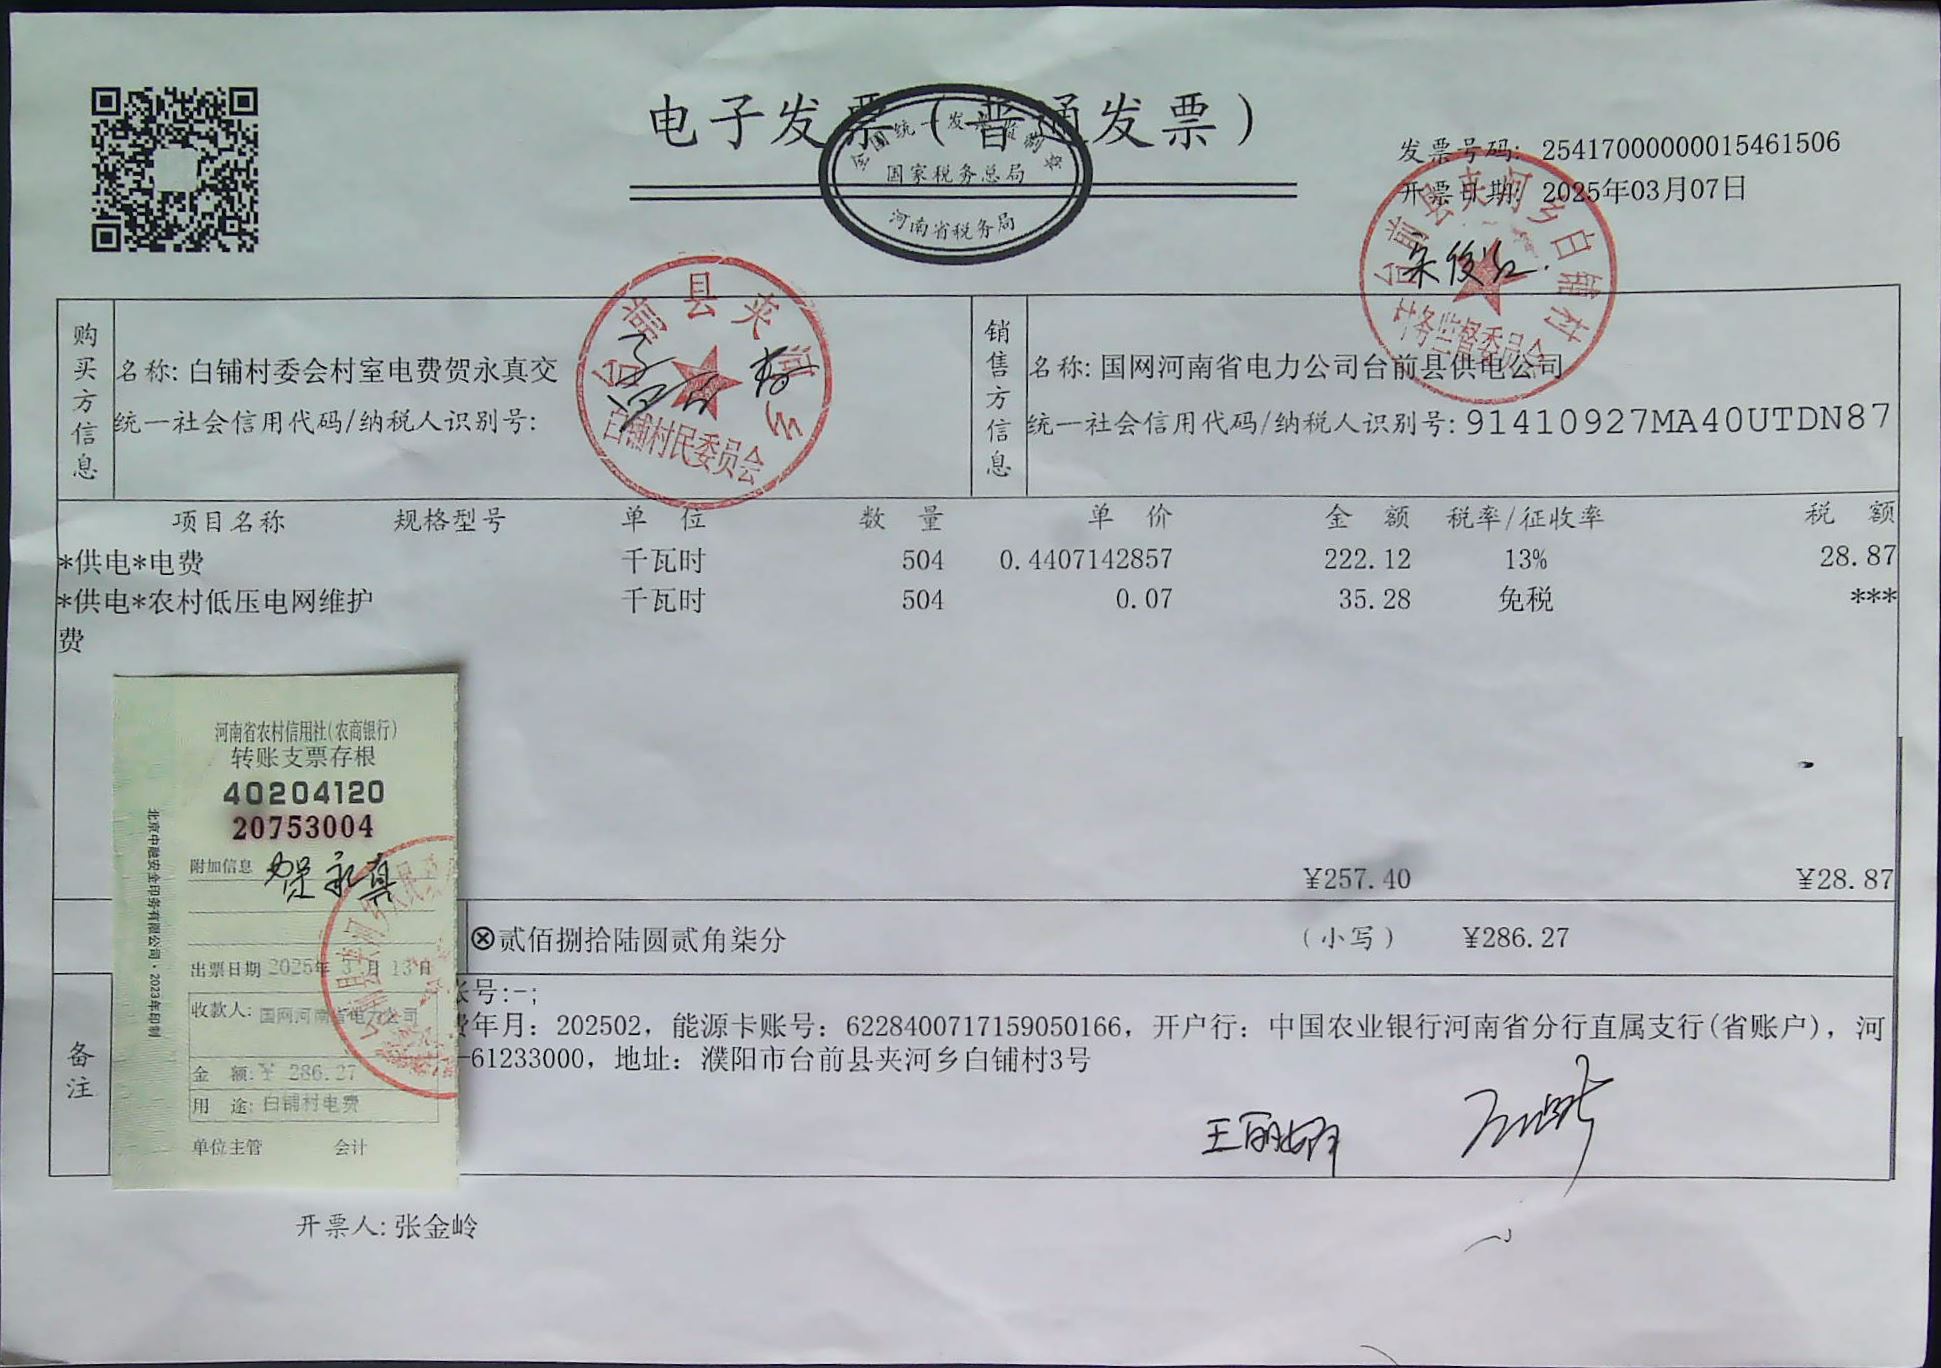 电子发票（普通发票）
全国统一发票监制章
国家税务总局
河南省税务局
发票号码: 25417000000015461506
开票日期: 2025年03月07日
台前县夹河乡白铺村
村务监督委员会
台前县夹河乡
白铺村民委员会
购买方信息
名称: 白铺村委会村室电费贺永真交
统一社会信用代码/纳税人识别号:
销售方信息
名称: 国网河南省电力公司台前县供电公司
统一社会信用代码/纳税人识别号: 91410927MA40UTDN87
项目名称 规格型号 单 位 数 量 单 价 金 额 税率/征收率 税 额
*供电*电费 千瓦时 504 0.4407142857 222.12 13% 28.87
*供电*农村低压电网维护 千瓦时 504 0.07 35.28 免税 ***
费
¥257.40 ¥28.87
ⓧ贰佰捌拾陆圆贰角柒分 （小写） ¥286.27
备注
账号:-;
费年月: 202502, 能源卡账号: 6228400717159050166, 开户行: 中国农业银行河南省分行直属支行(省账户), 河
-61233000, 地址: 濮阳市台前县夹河乡白铺村3号
王丽娜
河南省农村信用社(农商银行)
转账支票存根
40204120
20753004
附加信息 贺永真
出票日期 2025年 3 月 13日
收款人: 国网河南省电力公司
金 额: ¥ 286.27
用 途: 白铺村电费
单位主管 会计
北京中融安全印务有限公司·2023年印制
开票人: 张金岭